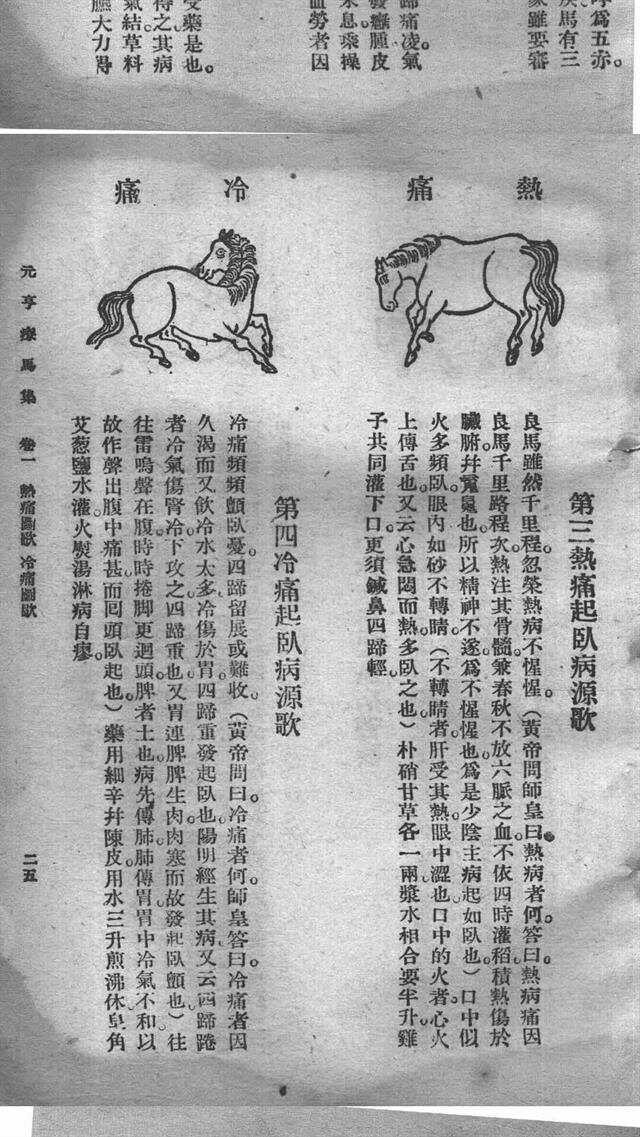 疾馬有三
家雖要審
蹄痛凌氣
發癰腫皮
血勞者因
受藥是也。
得之其病
氣結草料
臕大力得
熱痛
冷痛
第三熱痛起臥病源歌
良馬雖然千里程。忽榮熱病不惺惺。(黃帝問師皇曰熱病者何。答曰熱病痛因
良馬千里路程。次熱注其骨髓。兼春秋不放六脈之血。不依四時灌稻積熱傷於
臟腑幷竃竃也。所以精神不遂。爲不惺惺也。爲是少陰主病起如臥也。)口中似
火多頻臥。眼內如砂不轉睛。(不轉睛者肝受其熱。眼中澀也。口中的火者。心火
上傳舌也。又云心急悶而熱多臥之也)朴硝甘草各一兩。漿水相合要半升。雞
子共同灌下口。更須鍼鼻四蹄輕。
第四冷痛起臥病源歌
冷痛頻頻顫臥憂。四蹄留展或難收。(黃帝問曰。冷痛者何。師皇答曰。冷痛者因
久渴而又飲冷水太多。冷傷於胃。四蹄重發起臥也。陽明經生其病。又云四蹄踡
者。冷氣傷腎。冷下攻之。四蹄重也。又胃連脾。脾生肉。肉寒而故發起臥顫也。)往
往雷鳴聲在腹。時時捲脚更迴頭。脾者土也。病先傳肺。肺傳胃。胃中冷氣不和以
故作聲出腹中痛甚而回頭臥起也)藥用細辛幷陳皮。用水三升煎沸休。皂角
艾葱鹽水灌。火熨湯淋病自瘳。
元亨療馬集 卷一 熱痛圖歌 冷痛圖歌 二五